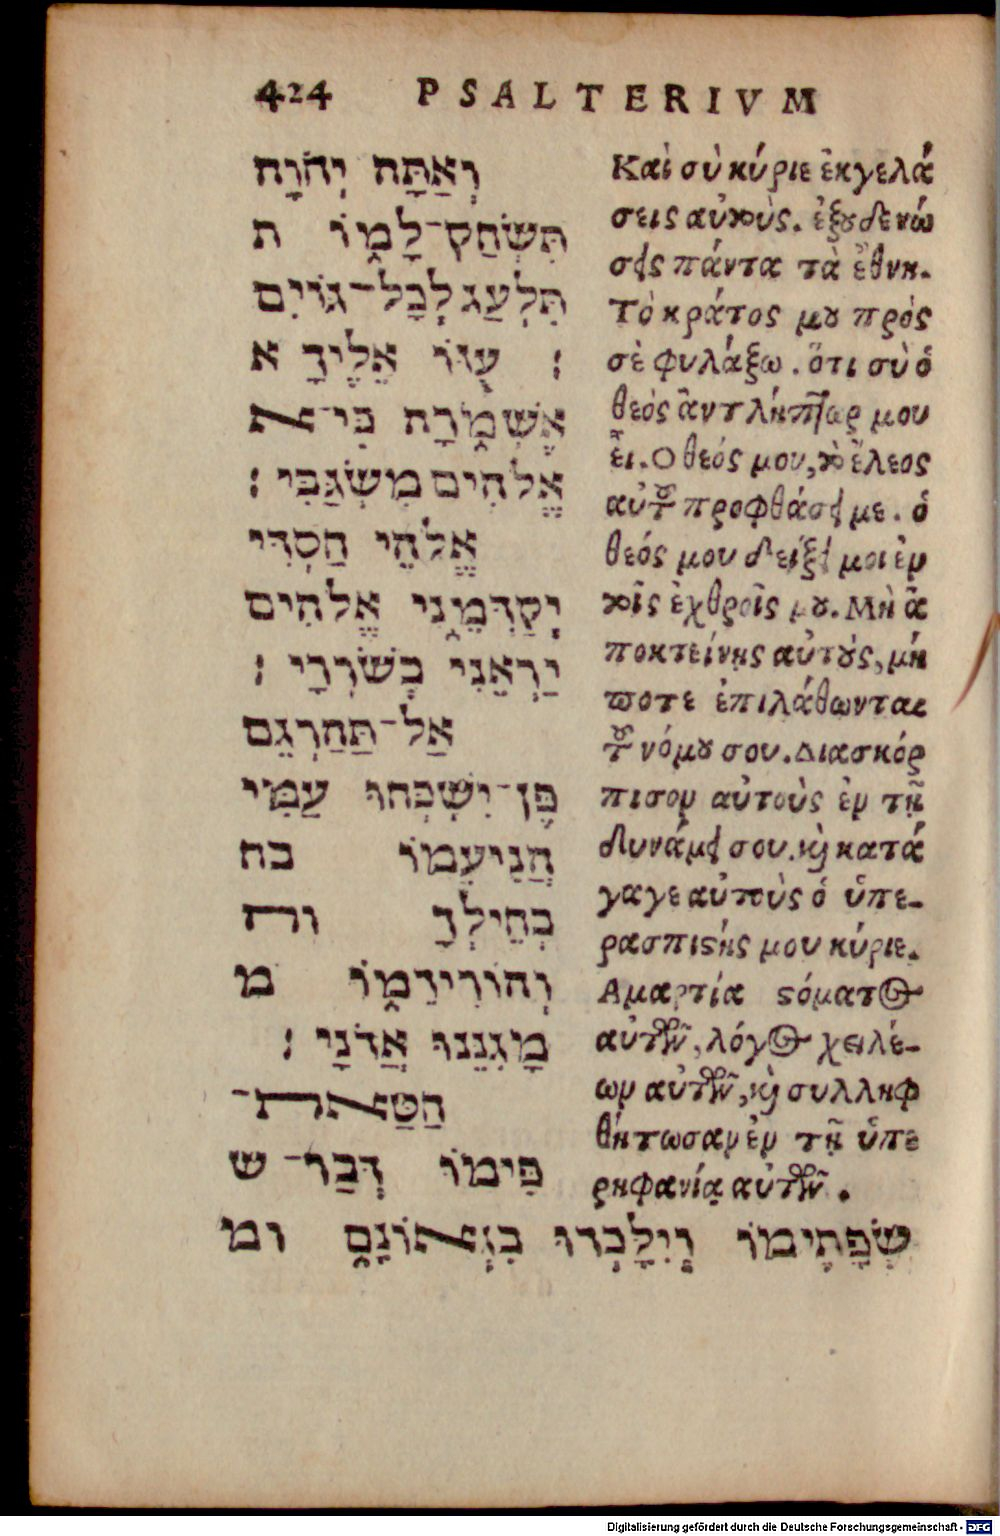 424 PSALTERIVM
וְאַתָּה יְהֹוָה
תִּשְׂחַק־לָמ֑וֹ ת
תִּלְעַג לְכָל־גּוֹיִם
: עֻזּוֹ אֵלֶיךָ א
אֶשְׁמֹ֑רָה כִּי־א
אֱלֹהִים מִשְׂגַּבִּי :
אֱלֹהֵי חַסְדִּי
יְקַדְּמֵ֑נִי אֱלֹהִים
יַרְאֵנִי בְשֹׁרְרָי :
אַל־תַּהַרְגֵם
פֶּן־יִשְׁכְּחוּ עַמִּי
הֲנִיעֵמוֹ בח
בְחֵילְךָ וה
וְהוֹרִידֵמ֑וֹ מ
מָגִנֵּנוּ אֲדֹנָי :
חַטַּאת־
פִּימוֹ דְּבַר־ ש
שְׂפָתֵימוֹ וְיִלָּכְדוּ בִגְאוֹנָם֑ ומ
Καὶ σὺ κύριε ἐκγελά
σεις αὐτούς. ἐξουδενώ
σεις πάντα τὰ ἔθνη.
Τὸ κράτος μου πρὸς
σὲ φυλάξω. ὅτι σὺ ὁ
θεὸς ἀντιλήπτωρ μου
εἶ. Ο θεός μου, τὸ ἔλεος
αὐτοῦ προφθάσει με. ὁ
θεός μου δείξει μοι ἐν
τοῖς ἐχθροῖς μου. Μὴ ἀ
ποκτείνῃς αὐτούς, μή
ποτε ἐπιλάθωνται
τοῦ νόμου σου. Διασκόρ
πισον αὐτοὺς ἐν τῇ
δυνάμει σου. καὶ κατά
γαγε αὐτοὺς ὁ ὑπε-
ρασπιστής μου κύριε.
Αμαρτία στόματος
αὐτῶν, λόγος χειλέ-
ων αὐτῶν, καὶ συλληφ
θήτωσαν ἐν τῇ ὑπε
ρηφανίᾳ αὐτῶν.
Digitalisierung gefördert durch die Deutsche Forschungsgemeinschaft - DFG